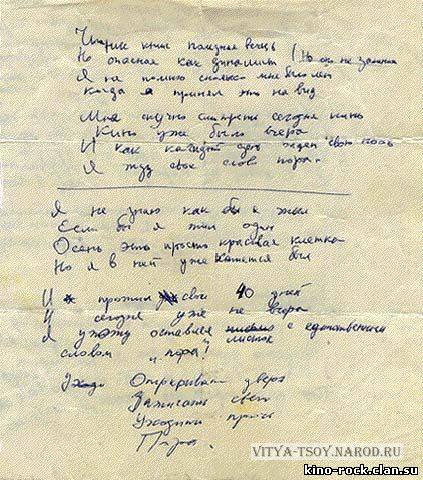 Чтение книг полезная вещь
Но опасная как динамит
Я не помню сколько мне было лет
Когда я принял это на вид
Мне скучно смотреть сегодня кино
Кино уже было вчера
И как каждый день ждет свою ночь
Я жду свое слово пора
Я не знаю как бы я жил
Если бы я жил один
Осень это просто красивая клетка
Но я в ней уже кажется был
И я прожил свои 40 дней
И сегодня уже не вчера
Я ухожу оставив листок с единственным
словом "пора"
Открывать дверь
Зажигать свет
Уходить прочь
Пора.
VITYA-TSOY.NAROD.RU
kino-rock.clan.su